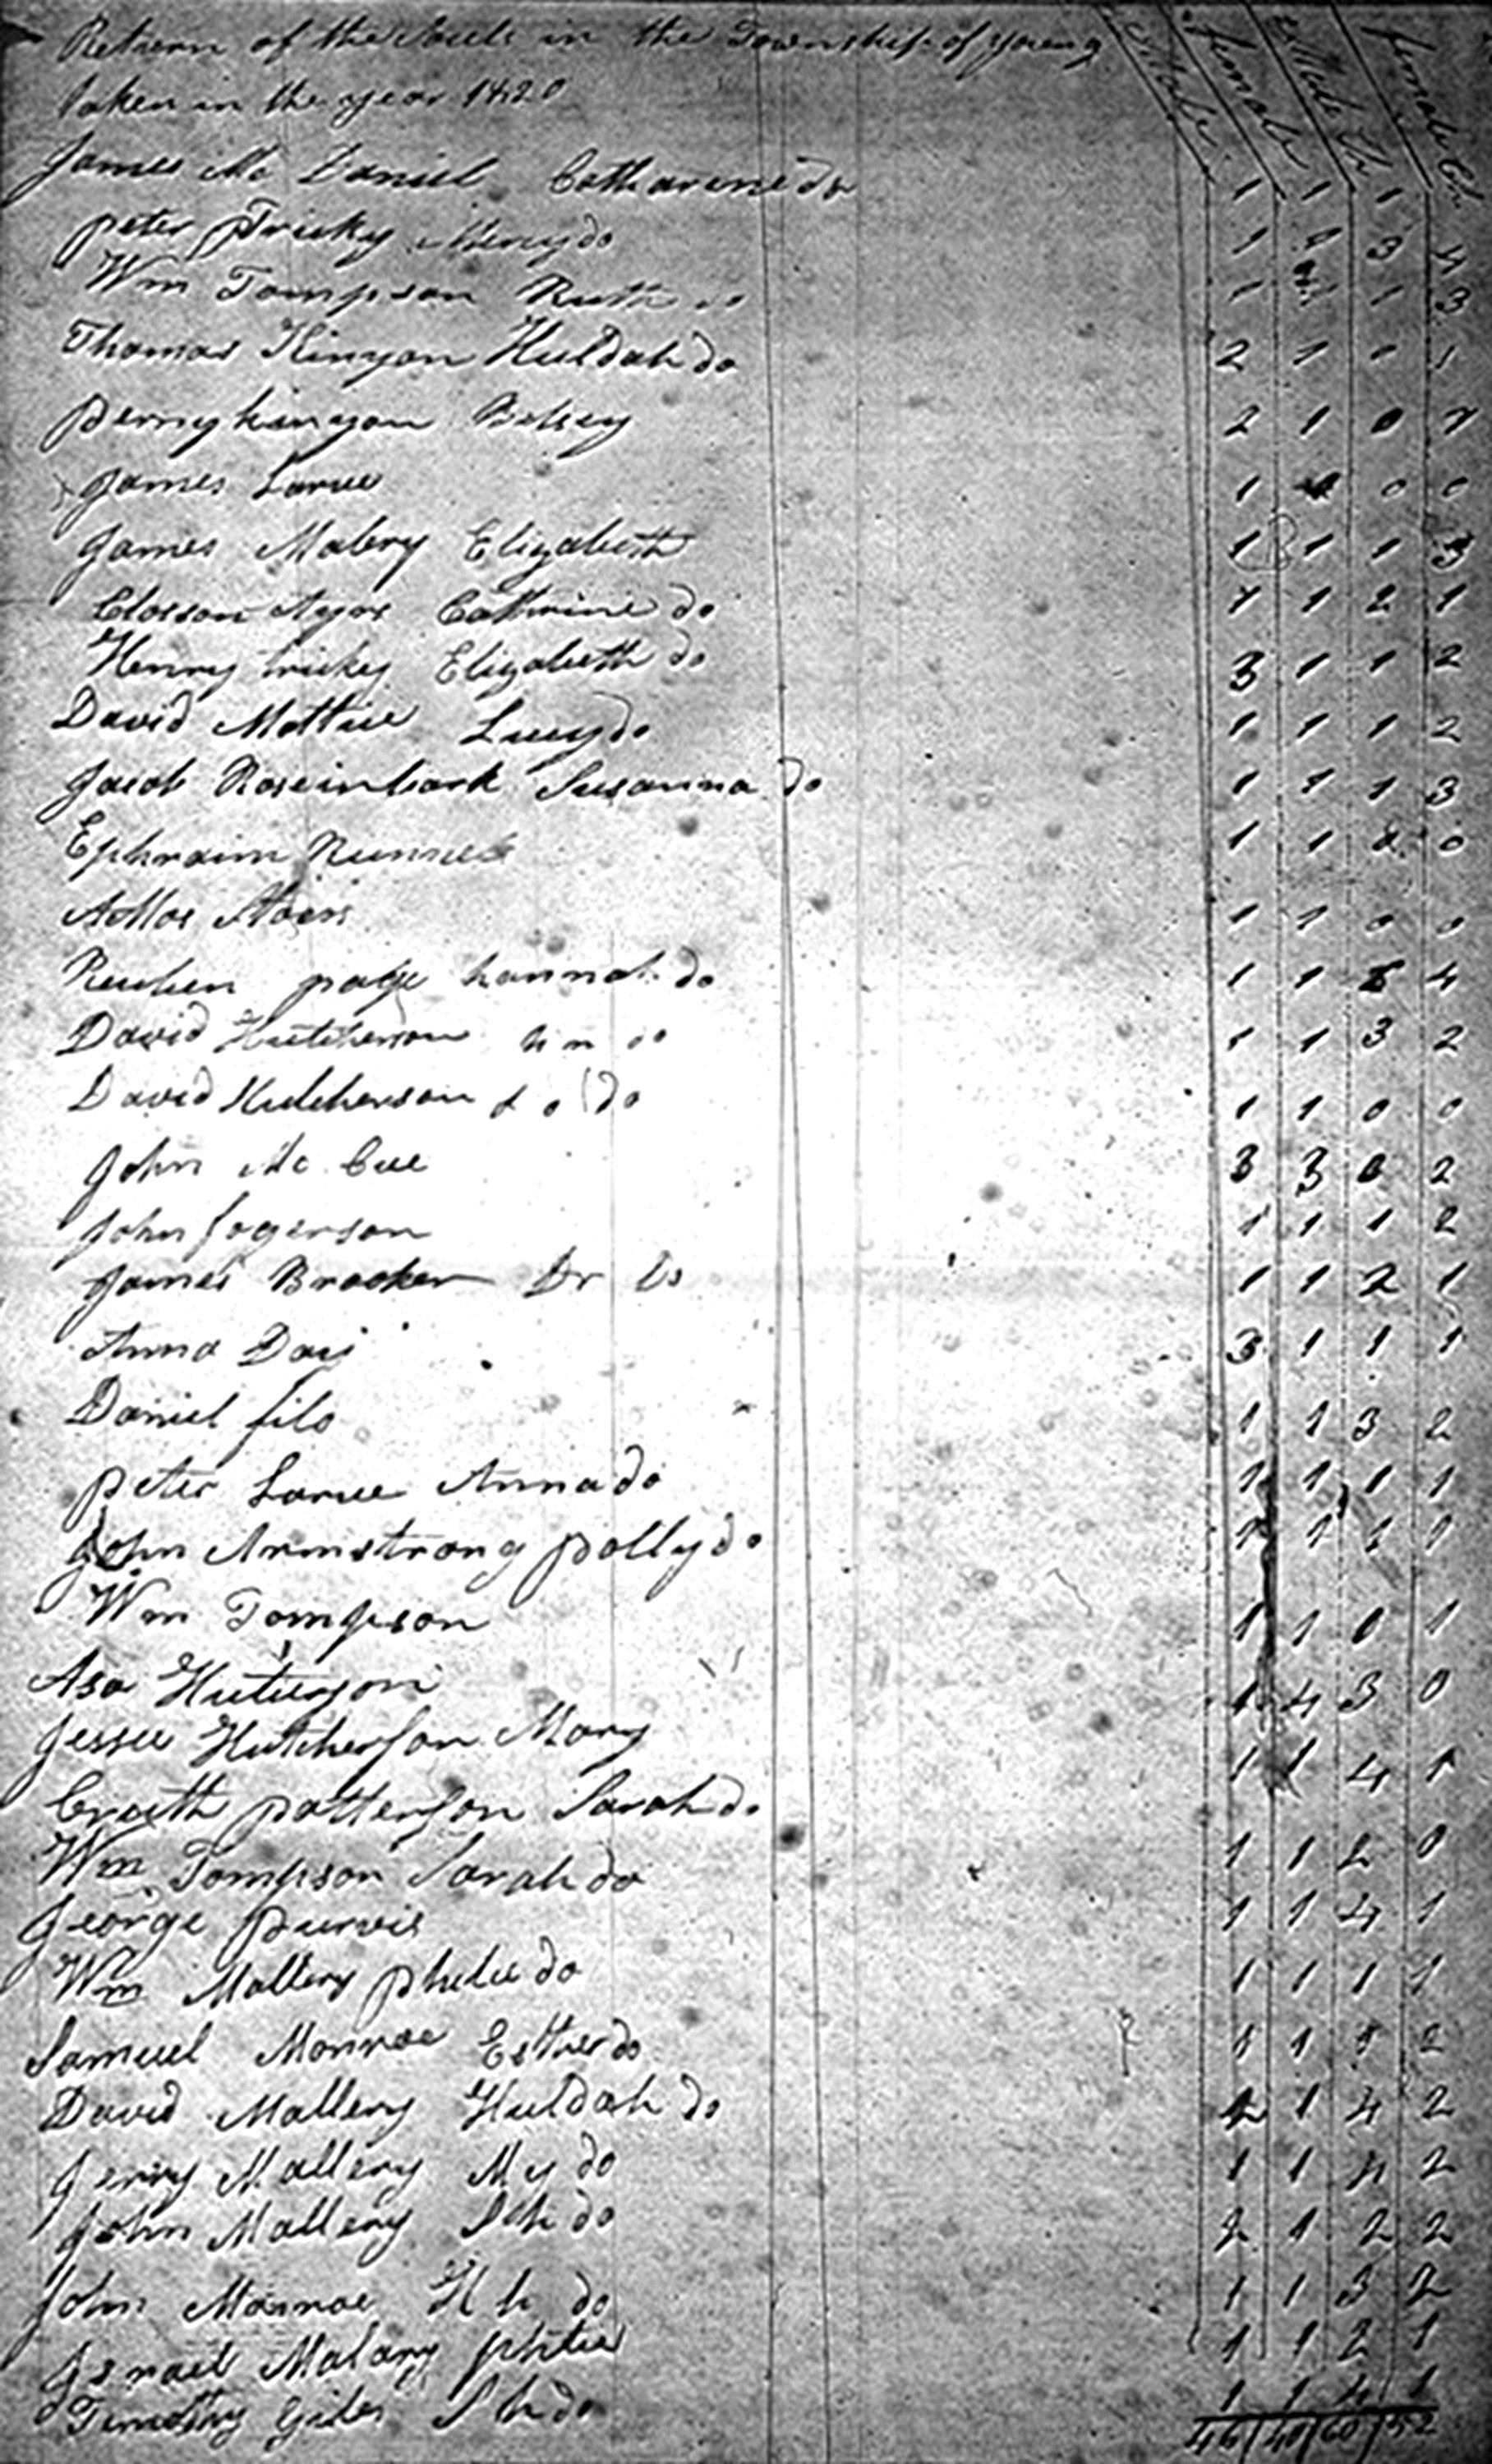 Return of the Souls in the Township of Young Male female Male Ch female Ch
taken in the year 1820
James Mc Daniel Catharene do 1 1 1
peter Tricky Mercy do 1 1 3 4
Wm Tompson Ruth do 1 1 1 3
Thomas Kinyon Huldah do 2 1 0 1
perry kinyon Betsey 2 1 0
James Larue 1 0 0
James Mabery Elizabeth 1 1 1 3
Closson Ayrs Cathrine do 1 1 2 1
Henry trickey Elizabeth do 3 1 1 2
David Mattice Lucy do 1 1 1 2
Jacob Roseinbark Susanna do 1 1 1 3
Ephraim Runnels 1 1 0
1 1 0 0
Reuben page hannah do 1 1 4
David Hutcherson do 1 1 3 2
David Hutcherson do 1 1 0 0
John Mc Cue 3 3 0 2
John fogerson 1 1 1 2
James Brooker Dr 1 1 2 1
Anna Davis 3 1 1 1
Daniel filo 1 1 3 2
peter Larue Anna do 1 1 1 1
John Armstrong polly do 1 1 1 1
Wm Tompson 1 1 0 1
Asa 1 4 3 0
Jesse Hutcherson Mary 1 1 4 1
patterson Sarah do 1 1 2 0
Wm Tompson Sarah do 1 1 4 1
George purvis 1 1 1 1
Wm Mallery do 1 1 2
Samuel Monroe Esther do 1 4 2
David Mallery Huldah do 1 1 4 2
Jerry Mallery My do 2 1 2 2
John Mallery Sh do 1 1 3 2
John Monroe H h do 1 1 2 1
Israel Malary 1 1 1
Timothy Giles S h do
46 60 52